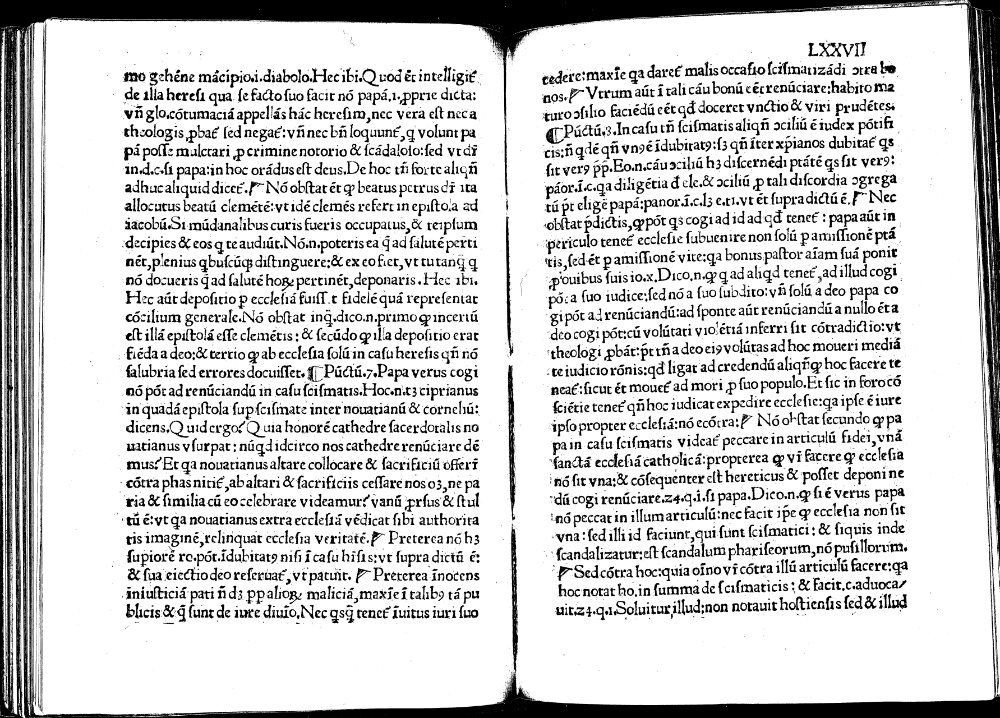 mo gehéne mácipio.i.diabolo.Hec ibi.Quod ēt intelligit᷑
de illa heresi qua se facto suo facit nó papá.i.ꝓprie dicta:
vñ glo.cótumaciá appellás hác heresim, nec vera est nec a
theologis ꝓbat᷑ sed negat᷑: vñ nec bñ loquunt᷑, q volunt pa
pá posse mulctari ꝓ crimine notorio & scádaloso: sed vt dr̄
in.d.c.si papa: in hoc orádus est deus. De hoc tñ forte aliqñ
adhuc aliquid dicet᷑. ¶ Nó obstat ēt ꝙ beatus petrus dr̄ ita
allocutus beatú clemété: vt idé clemés refert in epistola ad
iacobú. Si múdanalibus curis fueris occupatus, & teipsum
decipies & eos q te audiút. Nó.n.poteris ea q̄ ad saluté perti
nét, plenius q̄buscúq̧ distinguere: & ex eo fiet, vt tu tanq̄ q
nó docueris q̄ ad saluté hoꝝ pertinét, deponaris. Hec ibi.
Hec aút depositio ꝑ ecclesiá fuisset fidelé quá representat
cócilium generale. Nó obstat inq̄.dico.n.primo ꝙ incertú
est illá epistolá esse clemétis: & secúdo ꝙ illa depositio erat
fiéda a deo: & tertio ꝙ ab ecclesia solú in casu heresis qñ nó
salubria sed errores docuisset. ¶ Púctú.7. Papa verus cogi
nó pót ad renúciandú in casu scismatis. Hoc.n.tʒ ciprianus
in quadá epistola sup scismate inter nouatianú & corneliú:
dicens. Quid ergo? Quia honoré cathedre sacerdotalis no
uatianus vsurpat: núqd idcirco nos cathedre renúciare dé
mus? Et qa nouatianus altare collocare & sacrificiú offerr̄
cótra phas nitit᷑, ab altari & sacrificiis cessare nos oʒ, ne pa
ria & similia cú eo celebrare videamur? vanú ꝓrsus & stul
tú é: vt qa nouatianus extra ecclesiá védicat sibi authorita
tis imaginé, relinquat ecclesia veritaté. ¶ Preterea nó hʒ
supioré ro.pót.ídubitatꝰ nisi í casu hísis: vt supra dictú é:
& sua eiectio deo reseruat᷑, vt patuit. ¶ Preterea ínocens
iniusticiá pati ñ dʒ pp alioꝝ maliciá, maxíe í talibꝰ tá pu
blicis & q̄ sunt de iure diuío. Nec qsq̄ tenet᷑ íuitus iuri suo
LXXVII
cedere: maxíe qa daret᷑ malis occasio scismatizádi ↄtra bo
nos. ¶ Vtrum aút í tali cáu bonú eēt renúciare: habito ma
turo ↄsilio faciédú eēt qd doceret vnctio & viri prudétes.
¶ Púctú.3. In casu tñ scismatis aliqñ ↄciliú é iudex pótifi
cis: ñ qdé qñ vnꝰ é ídubitatꝰ: sʒ qñ íter xp̄ianos dubitat᷑ qs
sit verꝰ pp̄. Eo.n.cáu ↄciliú hʒ discernédi ptáté qs sit verꝰ:
páor.í.c.qa diligétia d̄ ele. & ↄciliú ꝓ tali discordia ↄgrega
tú pt̄ elige᷑ papá: panor.í.c.lʒ e.ti.vt ēt supra dictú é. ¶ Nec
obstat p̄dictis, ꝙ pót qs cogi ad id ad qd tenet᷑: papa aút in
periculo tenet᷑ ecclesie subuenire non solú ꝑ amissioné ptá
tis, sed ēt ꝑ amissioné vite: qa bonus pastor aíam suá ponit
ꝓ ouibus suis io.x. Dico.n.ꝙ q ad aliqd tenet᷑, ad illud cogi
pót a suo iudice: sed nó a suo subdito: vñ solú a deo papa co
gi pót ad renúciandú: ad sponte aút renúciandú a nullo éta
deo cogi pót: cú volútati violétiá inferri sit cótradictio: vt
theologi ꝓbát: pt̄ tñ a deo eiꝰ volútas ad hoc moueri mediá
te iudicio rónis: qd ligat ad credendú aliqñꝙ hoc facere te
neat᷑: sicut ēt mouet᷑ ad mori ꝓ suo populo. Et sic in foro có
sciétie tenet᷑ qñ hoc iudicat expedire ecclesie: qa ipse é iure
ipso propter ecclesiá: nó ecótra: ¶ Nó obstat secundo ꝙ pa
pa in casu scismatis videat᷑ peccare in articulú fidei, vná
sanctá ecclesiá catholicá: propterea ꝙ vr̄ facere ꝙ ecclesia
nó sit vna: & cósequenter est hereticus & posset deponi ne
dú cogi renúciare.24.q.i.si papa. Dico.n.ꝙ si é verus papa
nó peccat in illum articulú: nec facit ip̄e ꝙ ecclesia non sit
vna: sed illi id faciunt, qui sunt scismatici: & siquis inde
scandalizatur: est scandalum phariseorum, nó pusillorum.
¶ Sed cótra hoc: quia oíno vr̄ cótra illú articulú facere: qa
hoc notat ho. in summa de scismaticis: & facit.c.aduoca/
uit.24.q.1. Soluitur illud: non notauit hostiensis sed & illud